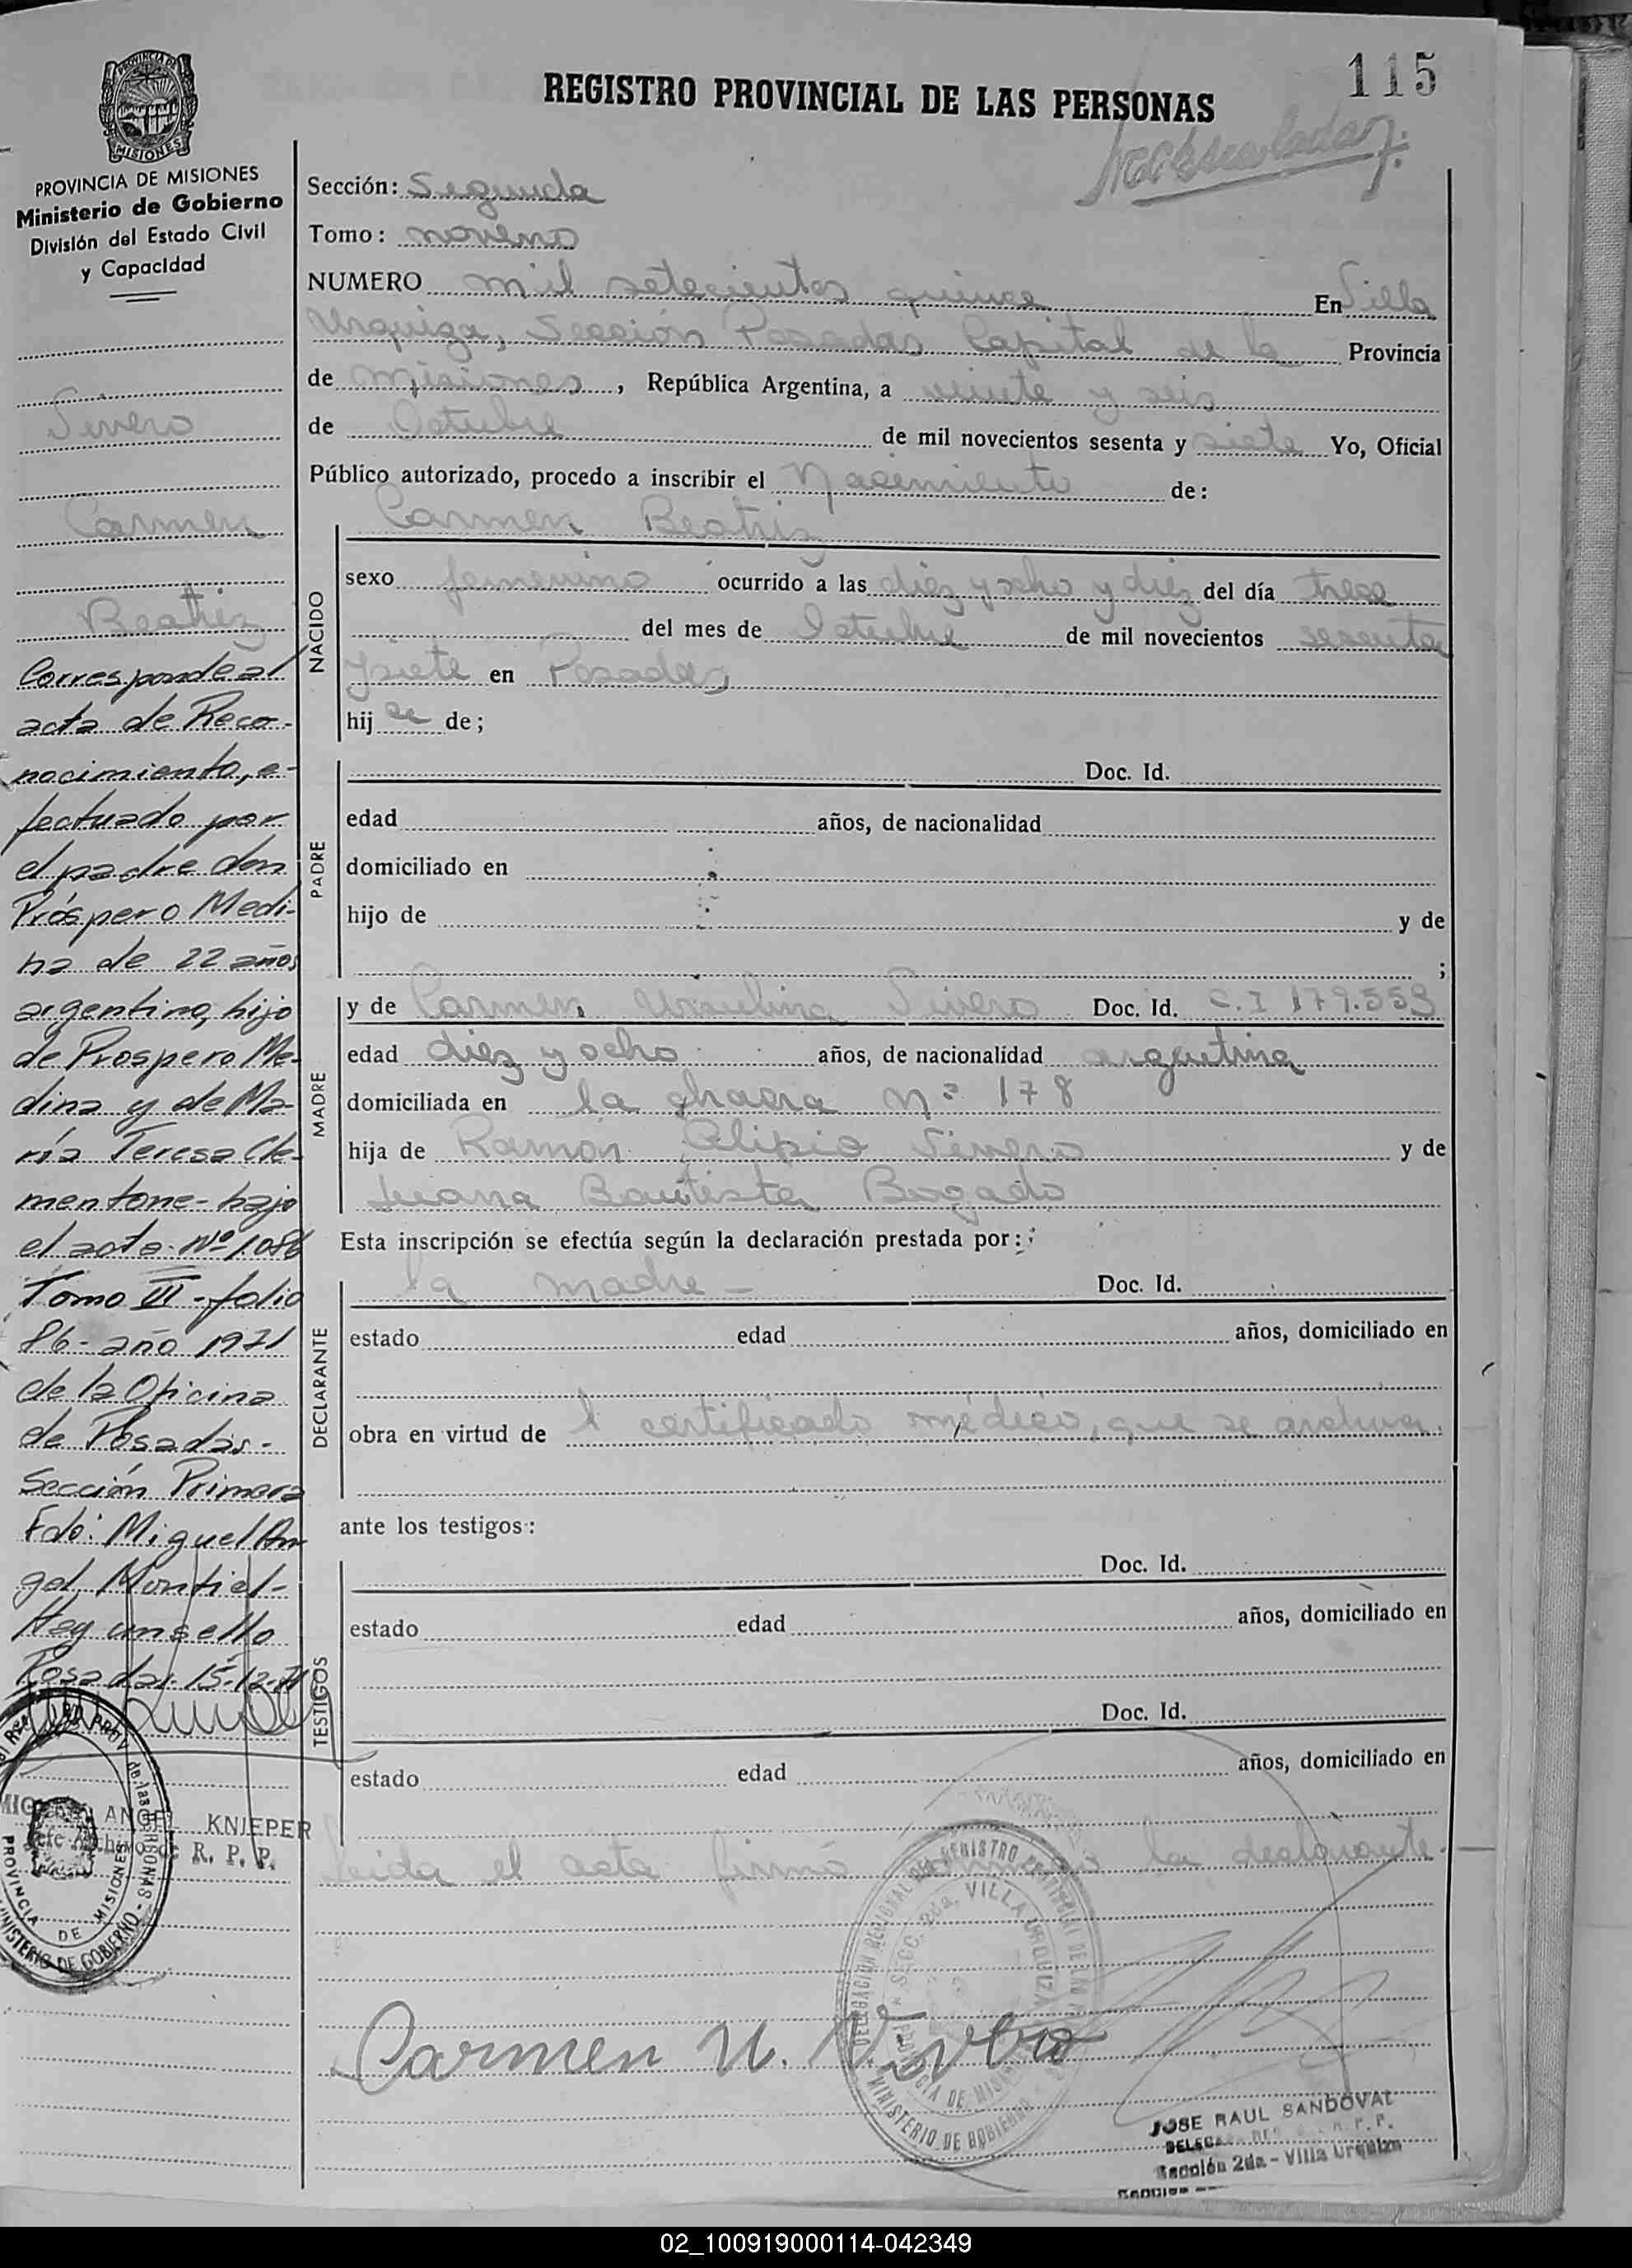 115
REGISTRO PROVINCIAL DE LAS PERSONAS
PROVINCIA DE MISIONES
Ministerio de Gobierno
División del Estado Civil
y Capacidad
Vivero
Carmen
Beatriz
Corresponde al
acta de Reco-
nocimiento, e-
fectuado por
el padre don
Próspero Medi-
na de 22 años
argentino, hijo
de Prospero Me-
dina y de Ma-
ría Teresa Cle-
mentone - bajo
el acta Nº 1.086
Tomo III - folio
86 - año 1971
de la Oficina
de Posadas -
Sección Primera
Fdo: Miguel An-
gel Montiel -
Hay un sello
Posadas 15-12-71
ANGEL KNIEPER
Jefe Archivo R. P. P.
PROVINCIA DE MISIONES
MINISTERIO DE GOBIERNO
Sección: Segunda
Tomo: noveno
NUMERO mil setecientos quince En Villa
Urquiza, Sección Posadas Capital de la Provincia
de Misiones, República Argentina, a veinte y seis
de Octubre de mil novecientos sesenta y siete Yo, Oficial
Público autorizado, procedo a inscribir el Nacimiento de:
Carmen Beatriz
NACIDO
sexo femenino ocurrido a las diez y ocho y diez del día trece
del mes de Octubre de mil novecientos sesenta
y siete en Posadas
hija de;
PADRE
Doc. Id.
edad años, de nacionalidad
domiciliado en
hijo de y de
;
MADRE
y de Carmen Ursulina Vivero Doc. Id. C.I 179.553
edad diez y ocho años, de nacionalidad argentina
domiciliada en la chacra nº 178
hija de Ramón Alipio Vivero y de
Juana Bautista Bogado
Esta inscripción se efectúa según la declaración prestada por:
DECLARANTE
la madre - Doc. Id.
estado edad años, domiciliado en
obra en virtud de l certificado médico, que se archiva.
ante los testigos:
TESTIGOS
Doc. Id.
estado edad años, domiciliado en
Doc. Id.
estado edad años, domiciliado en
Leida el acta firmó conmigo la declarante.
DELEGACION REGIONAL DEL REGISTRO PROVINCIAL DE LAS
SECC. 2da. VILLA URQUIZA
PROVINCIA DE MISIONES
MINISTERIO DE GOBIERNO
Carmen U. Vivero
JOSE RAUL SANDOVAL
R. P. P.
Sección 2da - Villa Urquiza
02_100919000114-042349